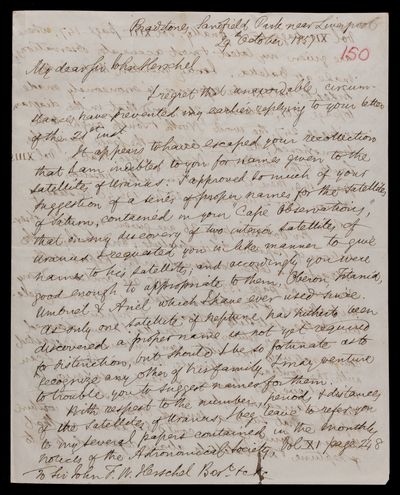 Bradstones, Sandfield Park near Liverpool
29 October 1857
150
My dear Sir John Herschel
I regret that unavoidable circum-
stances have prevented my earlier replying to your letter
of the 21st inst.
It appears to have escaped your recollection
that I am indebted to you for names given to the
satellites of Uranus. I approved so much of your
suggestion of a series of proper names for the Satellites
of Saturn, contained in your "Cape Observations,"
that on my discovery of two interior satellites of
Uranus I requested you in like manner to give
names to his satellites, and accordingly you were
good enough to appropriate to them, Oberon, Titania,
Umbriel & Ariel which I have ever used since.
As only one satellite of Neptune has hitherto been
discovered a proper name is not yet required
for distinction, but should I be so fortunate as to
recognize any other of his family, I may venture
to trouble you to suggest names for them.
With respect to the number, period & distances
of the Satellites of Uranus, I beg leave to refer you
to my several papers contained in the monthly
notices of the Astronomical Society Vol XI page 248
To Sir John F. W. Herschel Bart. &c &c